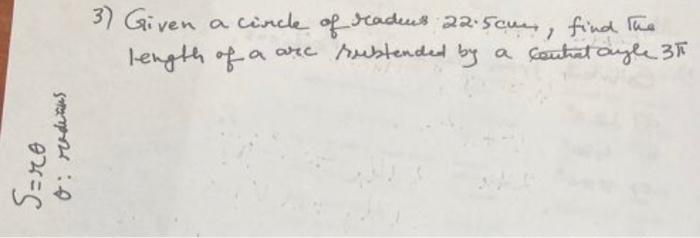 3) Given a circle of radius 22.5cm, find the
length of a arc subtended by a central angle 3π
S=rθ
θ: radians